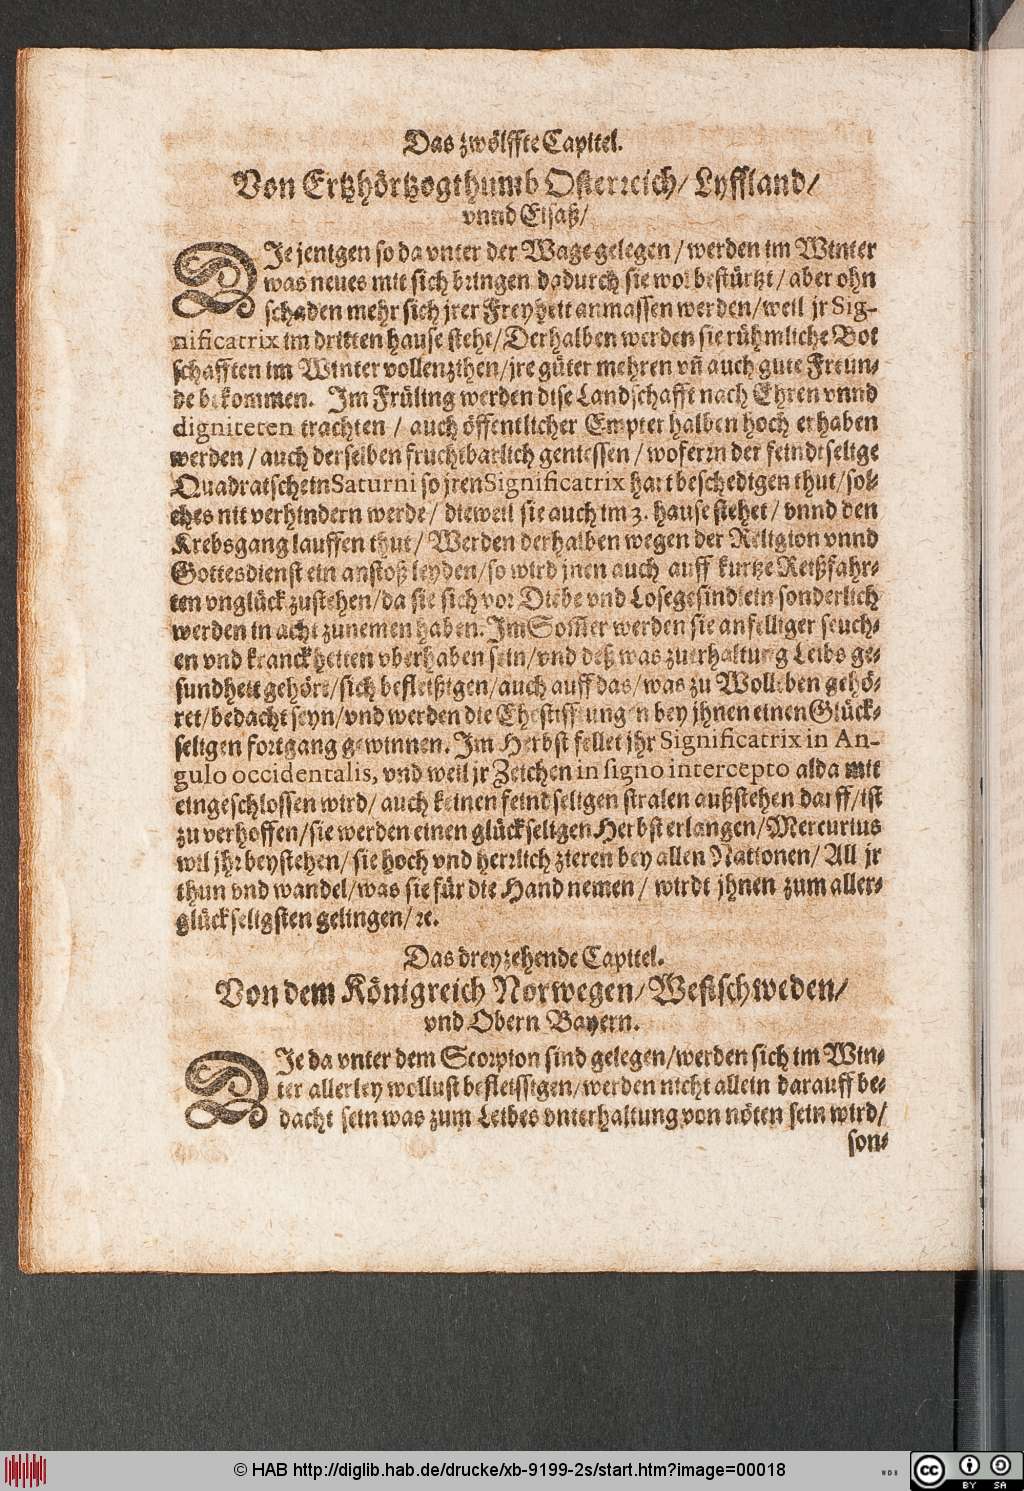 Das zwölffte Capitel.
Von Ertzhörtzogthumb Osterreich/ Lyffland/
vnnd Elsaß/
DIe jenigen so da vnter der Wage gelegen / werden im Winter
was neues mit sich bringen dadurch sie wol bestürtzt / aber ohn
schaden mehr sich jrer Freyheit anmassen werden/ weil jr Sig-
nificatrix im dritten hause stehe/ Derhalben werden sie rühmliche Bot
schafften im Winter vollenzihen/ jre güter mehren vñ auch gute Freun-
de bekommen. Im Früling werden dise Landschafft nach Ehren vnnd
digniteten trachten / auch öffentlicher Empter halben hoch erhaben
werden / auch derselben fruchtbarlich geniessen / wofern der feindtselige
Quadratschein Saturni so jren Significatrix hart beschedigen thut/ sol-
ches nit verhindern werde / dieweil sie auch im 3. hause stehet / vnnd den
Krebsgang lauffen thut / Werden derhalben wegen der Religion vnnd
Gottesdienst ein anstoß leyden/ so wird jnen auch auff kurtze Reißfahr-
ten vnglück zustehen/ da sie sich vor Diebe vnd Losegesindlein sonderlich
werden in acht zunemen haben. Im Som̃er werden sie anfelliger seuch-
en vnd kranckheiten vberhaben sein/ vnd deß was zuerhaltung Leibs ge-
sundheit gehört/ sich befleißigen/ auch auff das/ was zu Wolleben gehö-
ret/ bedacht seyn/ vnd werden die Ehestifftungen bey jhnen einen Glück-
seligen fortgang gewinnen. Im Herbst fellet jhr Significatrix in An-
gulo occidentalis, vnd weil jr Zeichen in signo intercepto alda mit
eingeschlossen wird/ auch keinen feindseligen stralen außstehen darff/ ist
zu verhoffen/ sie werden einen glückseligen Herbst erlangen/ Mercurius
wil jhr beystehen/ sie hoch vnd herrlich zieren bey allen Nationen/ All jr
thun vnd wandel/ was sie für die Hand nemen / wirdt jhnen zum aller-
glückseligsten gelingen/ ꝛc.
Das dreyzehende Capitel.
Von dem Königreich Norwegen/ Westschweden/
vnd Obern Bayern.
DIe da vnter dem Scorpion sind gelegen/ werden sich im Win-
ter allerley wollust befleissigen/ werden nicht allein darauff be-
dacht sein was zum Leibes vnterhaltung von nöten sein wird/
son-
© HAB http://diglib.hab.de/drucke/xb-9199-2s/start.htm?image=00018
WDB
cc BY SA